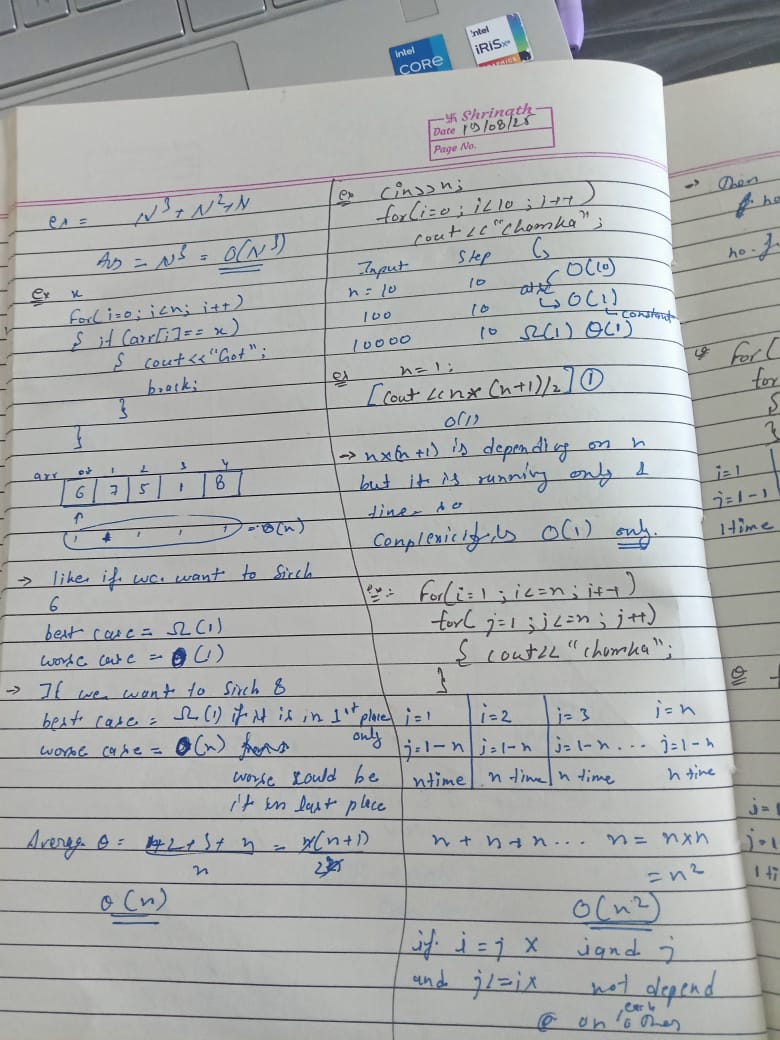 intel
CORE
intel
iRIS Xe
GRAPHICS
卐 Shrinath
Date 19/08/25
Page No.
ex = N³ + N² + N
Ans = N³ = O(N³)
ex x
for(i=0; i<n; i++)
{ if (arr[i] == x)
{ cout <<"Got";
break;
}
}
arr 0 1 2 3 4
6 7 5 1 8
↑
= O(n)
→ like if we want to Sirch
6
best case = Ω(1)
worse case = O(1)
→ If we want to Sirch 8
best case = Ω(1) if it is in 1st place
only
worse case = O(n)
worse would be
it in last place
Average θ = 1+2+3+ n / n = n(n+1) / 2n
θ(n)
ex cin>>n;
for(i=0; i<10; i++)
cout <<"chomka";
Input Step
n = 10 10 O(10)
100 10 O(1)
constant
10000 10 Ω(1) θ(1)
ex n=1;
[cout << n * (n+1)/2] ①
O(1)
→ n×(n+1) is depending on n
but it is running only 1
time so
Complexicity is O(1) only.
ex:- for(i=1; i<=n; i++)
for( j=1; j<=n; j++)
{ cout<< "chomka";
}
i=1 i=2 i=3 i=n
j=1-n j=1-n j=1-n ... j=1-n
n time n time n time n time
n + n + n ... n = n×n
= n²
O(n²)
if i = j × i and j
and j<=i × not depend
on each other
→ then
no.
for(
for
{
}
i=1
j=1-1
1 time